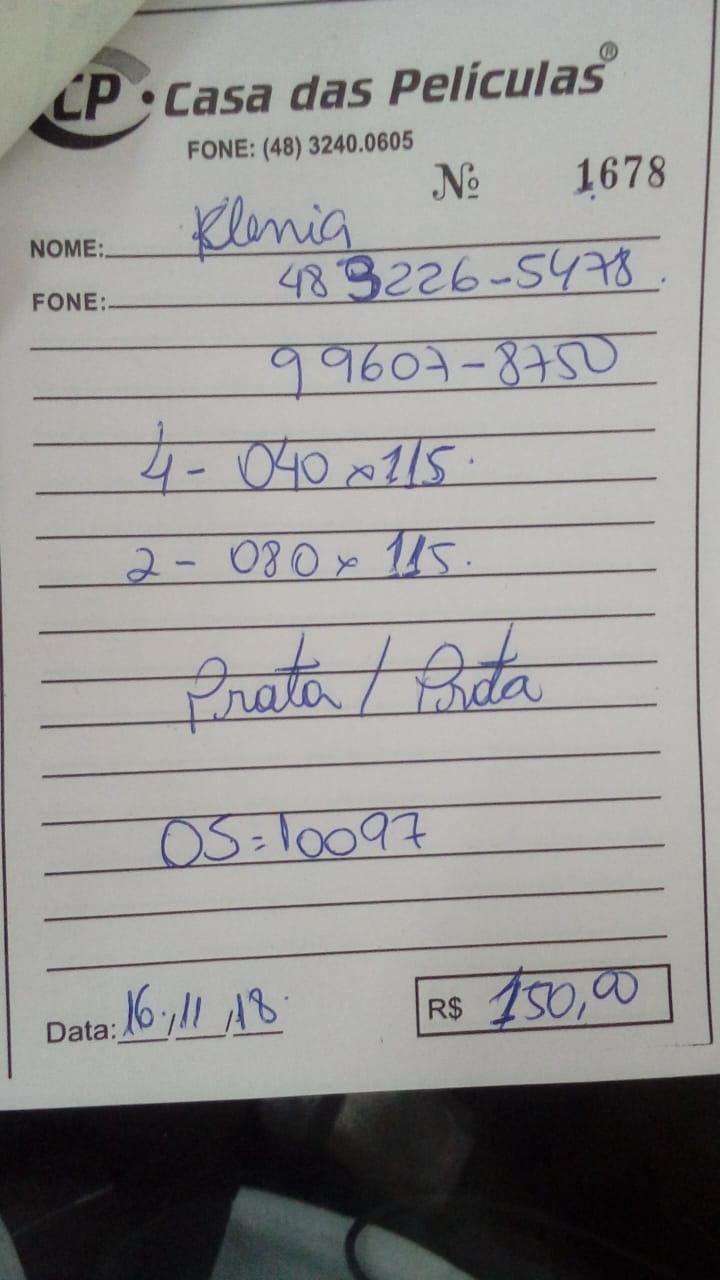 CP • Casa das Películas®
FONE: (48) 3240.0605
Nº 1678
NOME: Klenia
FONE: 48 3226-5478.
99607-8750
4 - 040 x 115.
2 - 080 x 115.
Prata / Preta
OS = 10097
Data: 16/11/18
R$ 150,00